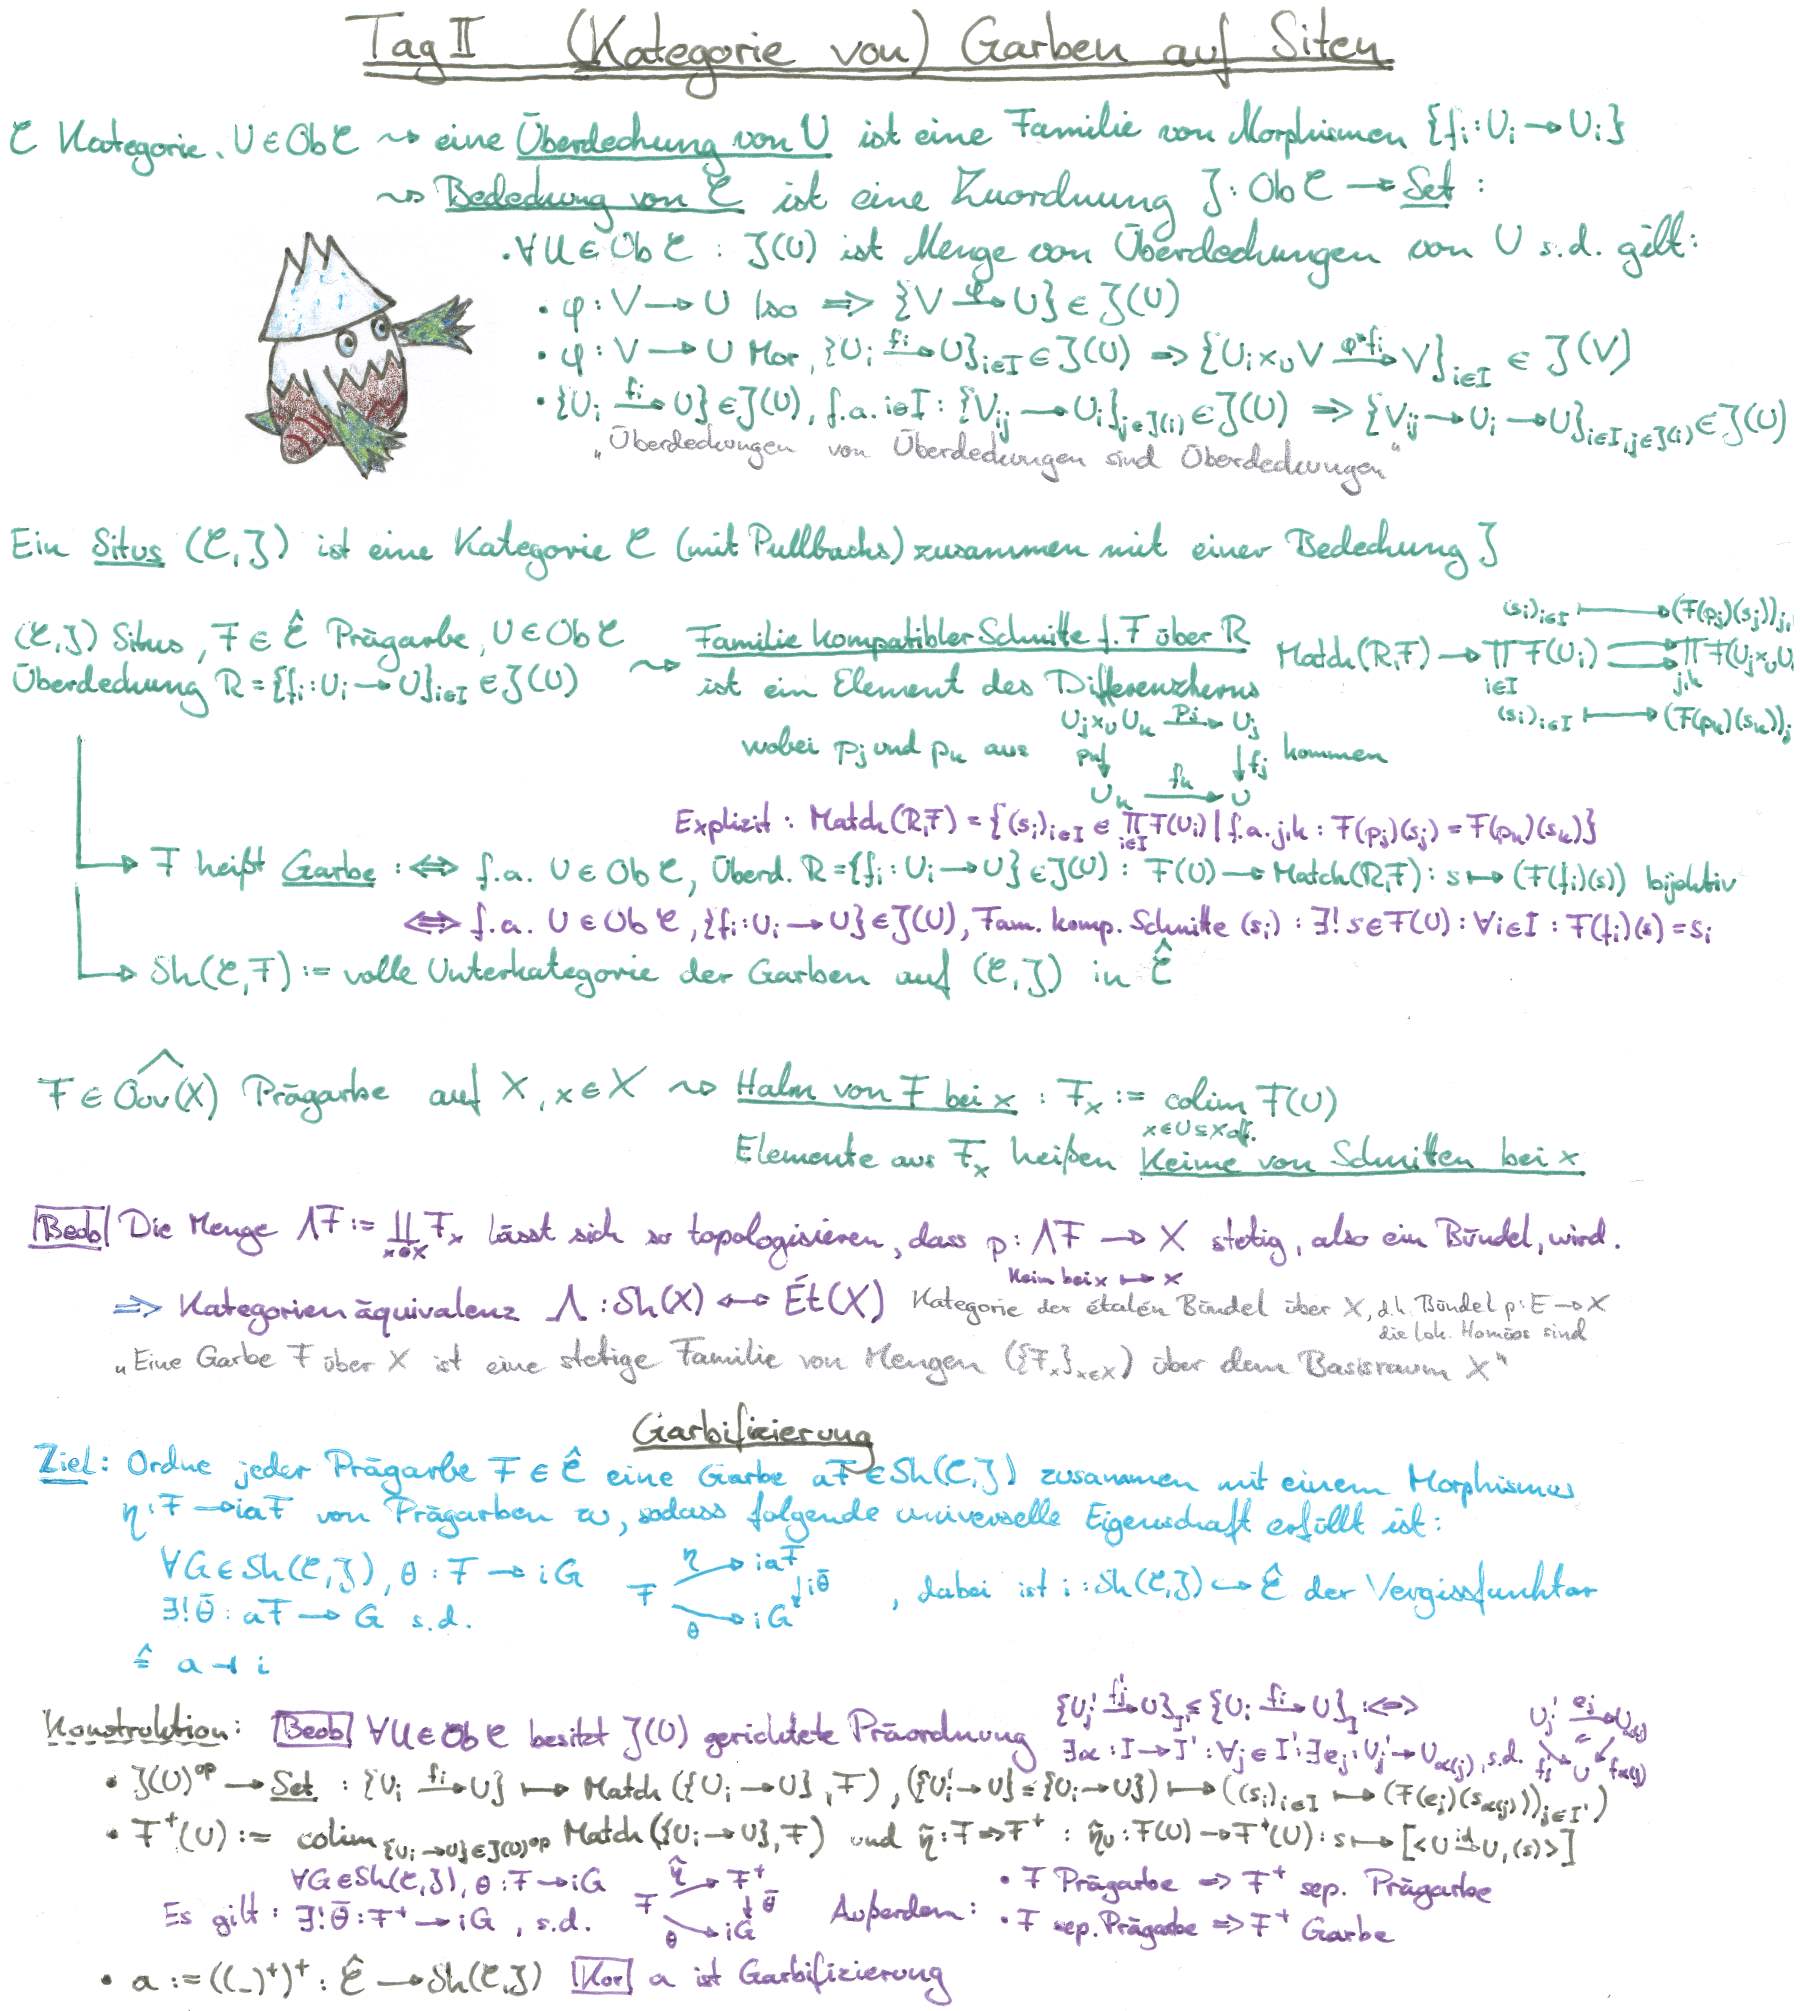 Tag II (Kategorie von) Garben auf Siten
𝒞 Kategorie, U ∈ Ob 𝒞 ⇝ eine Überdeckung von U ist eine Familie von Morphismen {fᵢ : Uᵢ → Uᵢ}
⇝ Bedeckung von 𝒞 ist eine Zuordnung J : Ob 𝒞 → Set :
• ∀U ∈ Ob 𝒞 : J(U) ist Menge von Überdeckungen von U s.d. gilt:
• φ : V → U Iso ⇒ {V –φ→ U} ∈ J(U)
• φ : V → U Mor, {Uᵢ –fᵢ→ U}_{i∈I} ∈ J(U) ⇒ {Uᵢ ×_U V –φ*fᵢ→ V}_{i∈I} ∈ J(V)
• {Uᵢ –fᵢ→ U} ∈ J(U), f.a. i∈I : {Vᵢⱼ → Uᵢ}_{j∈J(i)} ∈ J(U) ⇒ {Vᵢⱼ → Uᵢ → U}_{i∈I, j∈J(i)} ∈ J(U)
„Überdeckungen von Überdeckungen sind Überdeckungen“
Ein Situs (𝒞, J) ist eine Kategorie 𝒞 (mit Pullbacks) zusammen mit einer Bedeckung J
(𝒞, J) Situs, F ∈ 𝒞̂ Prägarbe, U ∈ Ob 𝒞
Überdeckung R = {fᵢ : Uᵢ → U}_{i∈I} ∈ J(U)
⇝ Familie kompatibler Schnitte f. F über R
ist ein Element des Differenzkerns
(sᵢ)_{i∈I} ⟼ (F(pⱼ)(sⱼ))_{j,
Match(R,F) → ∏_{i∈I} F(Uᵢ) ⇉ ∏_{j,k} F(Uⱼ ×_U U
(sᵢ)_{i∈I} ⟼ (F(pₖ)(sₖ))_{j
wobei pⱼ und pₖ aus
Uⱼ ×_U Uₖ –pⱼ→ Uⱼ
pₖ↓ ↓fⱼ
Uₖ –fₖ→ U
kommen
Explizit : Match(R,F) = {(sᵢ)_{i∈I} ∈ ∏_{i∈I} F(Uᵢ) | f.a. j,k : F(pⱼ)(sⱼ) = F(pₖ)(sₖ)}
→ F heißt Garbe :⇔ f.a. U ∈ Ob 𝒞, Überd. R = {fᵢ : Uᵢ → U} ∈ J(U) : F(U) → Match(R,F) : s ↦ (F(fᵢ)(s)) bijektiv
⇔ f.a. U ∈ Ob 𝒞, {fᵢ : Uᵢ → U} ∈ J(U), Fam. komp. Schnitte (sᵢ) : ∃! s ∈ F(U) : ∀i∈I : F(fᵢ)(s) = sᵢ
→ Sh(𝒞, F) := volle Unterkategorie der Garben auf (𝒞, J) in 𝒞̂
F ∈ Ouv(X)^ Prägarbe auf X, x ∈ X ⇝ Halm von F bei x : Fₓ := colim_{x∈U⊆X off.} F(U)
Elemente aus Fₓ heißen Keime von Schnitten bei x
Beob Die Menge ΛF := ∐_{x∈X} Fₓ lässt sich so topologisieren, dass p : ΛF → X stetig, also ein Bündel, wird.
Keim bei x ↦ x
⇒ Kategorienäquivalenz Λ : Sh(X) ↔ Ét(X) Kategorie der étalen Bündel über X, d.h. Bündel p : E → X
die lok. Homöos sind
„Eine Garbe F über X ist eine stetige Familie von Mengen ({Fₓ}_{x∈X}) über dem Basisraum X“
Garbifizierung
Ziel: Ordne jeder Prägarbe F ∈ 𝒞̂ eine Garbe aF ∈ Sh(𝒞, J) zusammen mit einem Morphismus
η : F → iaF von Prägarben zu, sodass folgende universelle Eigenschaft erfüllt ist:
∀G ∈ Sh(𝒞, J), θ : F → iG
∃! θ̄ : aF → G s.d.
F –η→ iaF
↓iθ̄
F –θ→ iG
, dabei ist i : Sh(𝒞, J) ↪ 𝒞̂ der Vergissfunktor
≙ a ⊣ i
Konstruktion: Beob ∀U ∈ Ob 𝒞 besitzt J(U) gerichtete Präordnung
{Uⱼ' –fⱼ'→ U}_{I'} ≤ {Uᵢ –fᵢ→ U}_I :⇔
∃α : I → I' : ∀j ∈ I' : ∃eⱼ : Uⱼ' → U_{α(j)}, s.d.
Uⱼ' –eⱼ→ U_{α(j)}
fⱼ' ↘ U ↙ f_{α(j)}
• J(U)^op → Set : {Uᵢ –fᵢ→ U} ↦ Match({Uᵢ → U}, F), ({Uᵢ' → U} ≤ {Uᵢ → U}) ↦ ((sᵢ)_{i∈I} ↦ (F(eⱼ)(s_{α(j)}))_{j∈I'})
• F⁺(U) := colim_{{Uᵢ→U}∈J(U)^op} Match({Uᵢ → U}, F) und η̃ : F ⇒ F⁺ : η̃_U : F(U) → F⁺(U) : s ↦ [<U –id→ U, (s)>]
∀G ∈ Sh(𝒞, J), θ : F → iG
Es gilt : ∃! θ̄ : F⁺ → iG, s.d.
F –η̃→ F⁺
↓θ̄
F –θ→ iG
Außerdem :
• F Prägarbe ⇒ F⁺ sep. Prägarbe
• F sep. Prägarbe ⇒ F⁺ Garbe
• a := ((_)⁺)⁺ : 𝒞̂ → Sh(𝒞, J) Kor a ist Garbifizierung